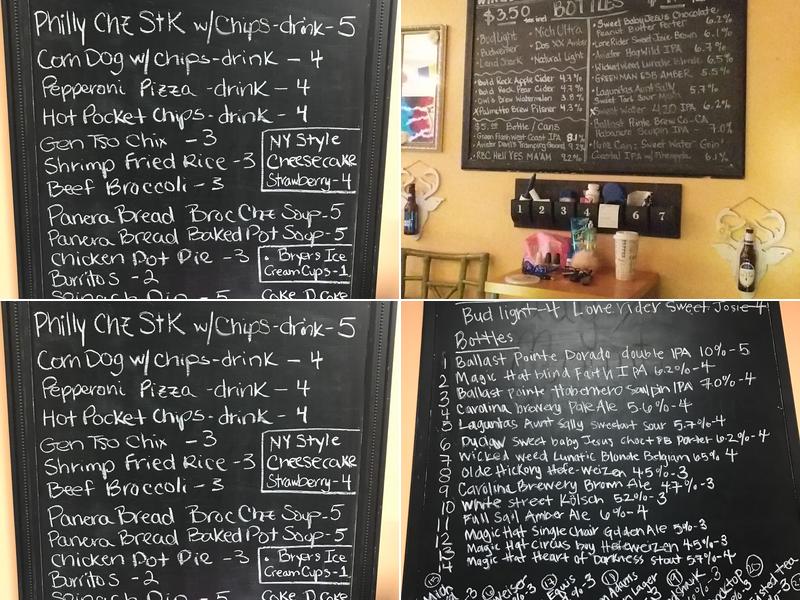 Philly Chz StK w/Chips-drink-5
Corn Dog w/chips-drink - 4
Pepperoni Pizza -drink - 4
Hot Pocket Chips- drink- 4
Gen Tso Chix - 3
Shrimp Fried Rice -3
Beef Broccoli - 3
NY Style
Cheesecake
Strawberry-4
Panera Bread Broc Chz Soup-5
Panera Bread Baked Pot Soup-5
Chicken Pot Pie -3
Burritos -2
• Bryers Ice
Cream Cups-1
$3.50 BOTTLES
• Bud Light • Mich Ultra
• Budweiser • Dos XX Amber
• Land Shark • Natural Light
• Bold Rock Apple Cider 4.7%
• Bold Rock Pear Cider 4.7%
• Owl's Brew Watermelon 3.8%
Palmetto Brew Pilsner 4.3%
$5.00 Bottle / Cans
• Green Flash West Coast IPA 8.1%
• Aviator Devil's Tramping Ground 9.2%
• RBC Hell YES MA'AM 9.2%
• Sweet Baby Jesus Chocolate
Peanut Butter Porter 6.2%
• Lone Rider Sweet Josie Brown 6.1%
• Aviator HogWild IPA 6.7%
• Wicked Weed Lunatic Blonde 6.5%
• GREEN MAN ESB AMBER 5.5%
• Lagunitas Aunt Sally
Sweet Tart Sour Mash 5.7%
Sweet Water 420 IPA 6.2%
• Ballast Pointe Brew Co-CA
Habanero Sculpin IPA - 7.0%
• 16oz Can: Sweet Water Goin'
Coastal IPA w/Pineapple 6.1%
1 2 3 4 6 7
Philly Chz StK w/Chips-drink-5
Corn Dog w/chips-drink - 4
Pepperoni Pizza -drink - 4
Hot Pocket Chips- drink- 4
Gen Tso Chix - 3
Shrimp Fried Rice -3
Beef Broccoli - 3
NY Style
Cheesecake
Strawberry-4
Panera Bread Broc Chz Soup-5
Panera Bread Baked Pot Soup-5
Chicken Pot Pie -3
Burritos -2
• Bryers Ice
Cream Cups-1
Bud light-4 Lone rider Sweet Josie-4
Bottles
1 Ballast Pointe Dorado double IPA 10%-5
2 Magic Hat blind Faith IPA 6.2%-4
3 Ballast pointe Habernero Sculpin IPA 7.0%-4
4 Carolina brewery Pale Ale 5.6%-4
5 Laguntas Aunt Sally sweetart sour 5.7%-4
6 Duclaw Sweet baby Jesus choc+PB Porter 6.2%-4
7 Wicked weed Lunatic Blonde Belgium 6.5% 4
8 Olde Hickory Hefe-weizen 4.5%-3
9 Carolina Brewery Brown Ale 4.7%-3
10 White street Kölsch 5.2%-3
11 Full Sail Amber Ale 6%-4
12 Magic Hat Single Chair Golden Ale 5%-3
13 Magic Hat Circus boy Hefeweizen 4.5%-3
14 Magic Hat Heart of Darkness stout 5.7%-4